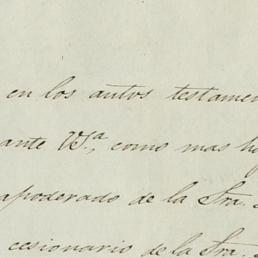 en los autos testamen
ante V.ª, como mas h
apoderado de la Sra.
cesionario de la Sra.